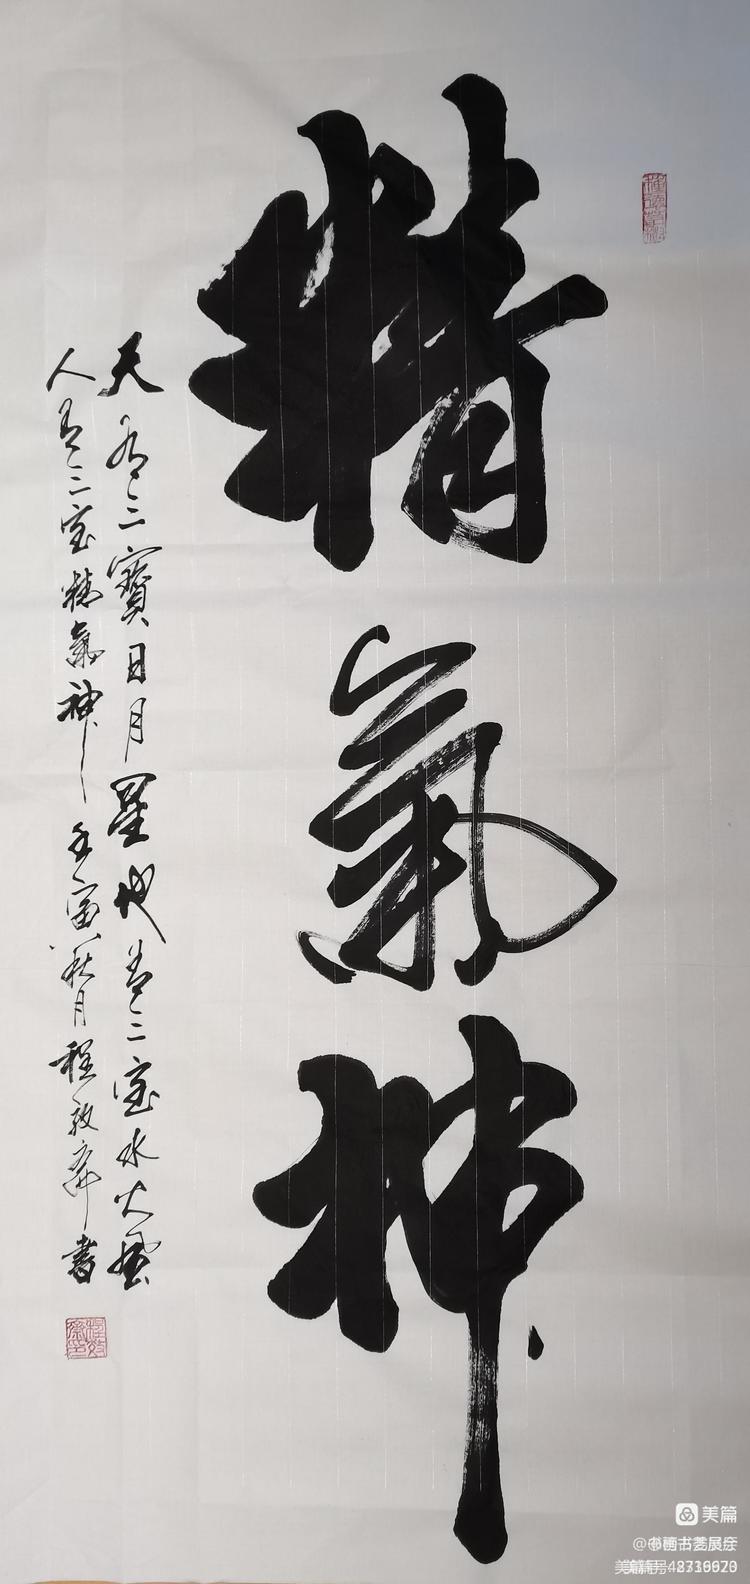 精氣神
天有三寶日月星地有三宝水火風
人有三宝精氣神壬寅秋月程敦奔書
美篇